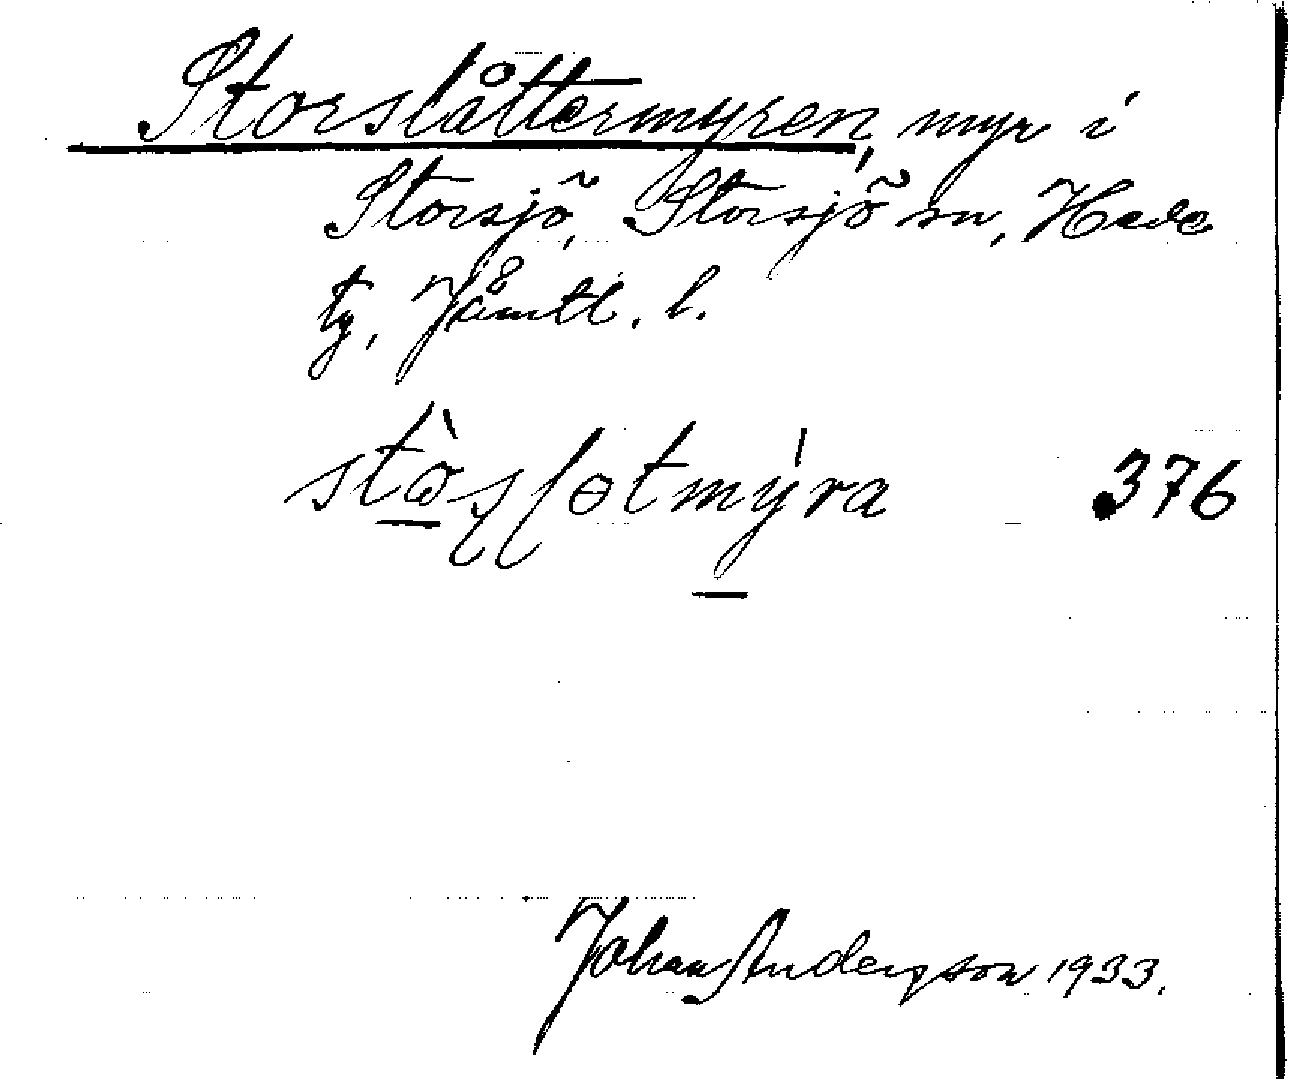 Storslåttermyren, myr i
Storsjö, Storsjö sn, Hede
tg, Jämtl. l.
376
Johan Andersson 1933.